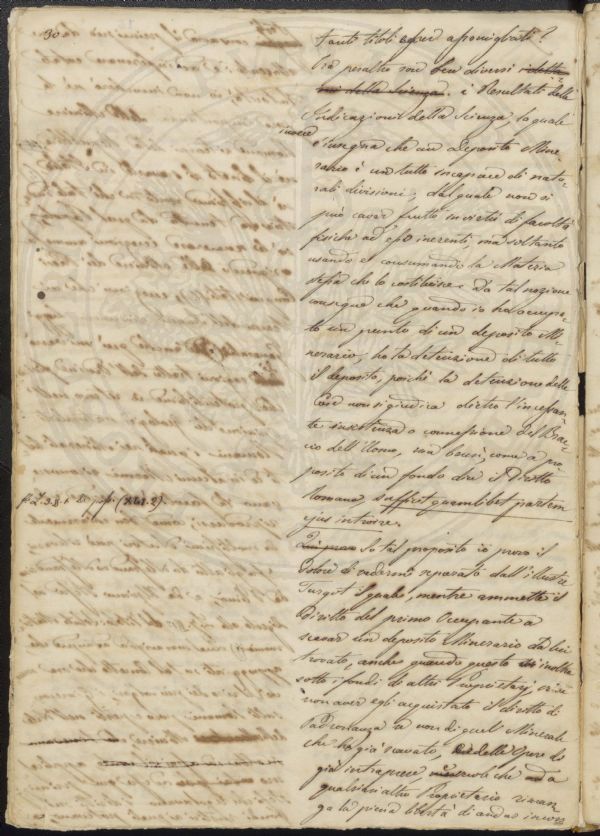 30
tanti titoli
Ciò peraltro son ben diversi i detta=
mi della Scienza. i Resultati delle
Indicazioni della Scienza, la quale
invece
c'insegna che un Deposito Mine=
rario è un tutto incapace di natu=
rali divisioni; dal quale non si
può cavar frutto in virtù di facoltà
fisiche ad esso inerenti, ma soltanto
usando e consumando la Materia
stessa che lo costituisce. Da tal nozione
consegue che quando io ho occupa=
to un punto di un deposito Mi=
nerario, ho la detenzione di tutto
il deposito, poichè la detenzione delle
Cose non si giudica dietro l'incessan=
te insistenza o connessione del Brac=
cio dell'Uomo, ma bensì, come a pro=
posito di un fondo dice il Diritto
Romano, sufficit quamlibet partem
ejus introire.
f. L. 3 § 1 (XLI. 2)
In tal proposito io provo il
dolore di vedermi separato dall'illustre
Turgot il quale, mentre ammette il
Diritto del primo Occupante a
scavar un deposito Minerario da lui
trovato, anche quando questo si inoltra
sotto i fondi di altri Proprietarj,
non aver egli acquistato il diritto di
Padronanza se non di quel Minerale
che ha già scavato, delle Opere da
già intraprese vuole che a
qualsivoglia altro Proprietario riman=
ga la piena libertà di andar